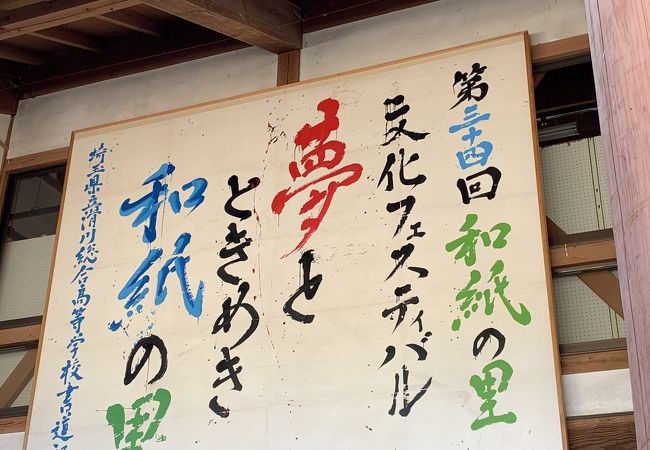 第三十四回 和紙の里
文化フェスティバル
夢と
ときめき
和紙の里
埼玉県立滑川総合高等学校書道